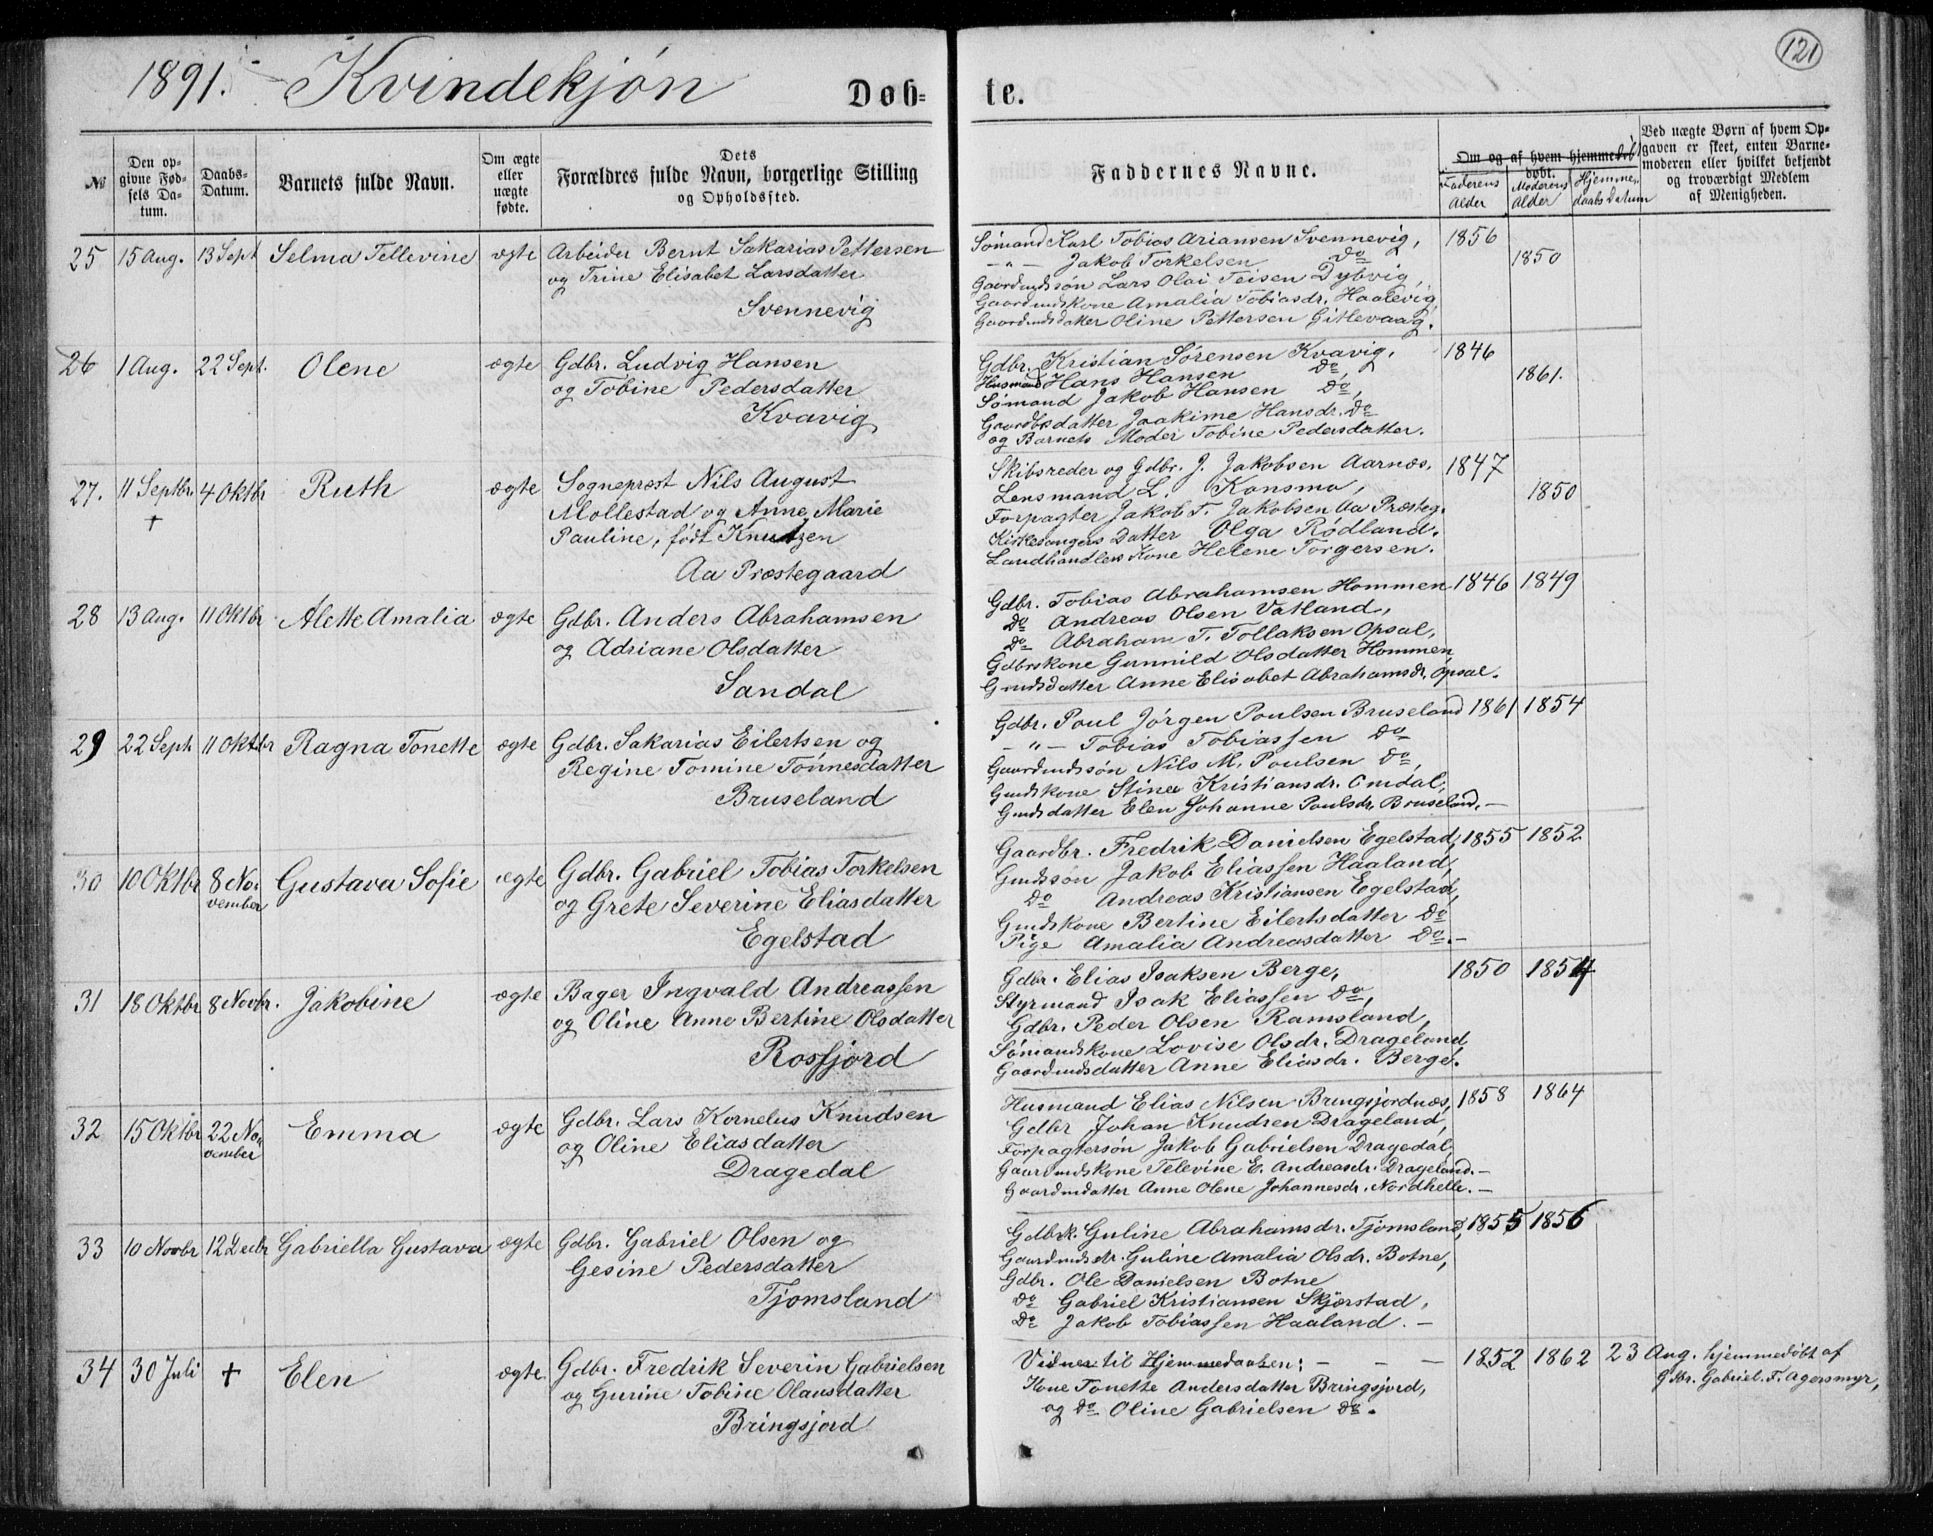 121
1891. Kvindekjøn
Døb= te.
№
Den opgivne Fødsels Datum.
Daabs-Datum.
Barnets fulde Navn.
Om ægte eller uægte fødte.
Dets Forældres fulde Navn, borgerlige Stilling og Opholdssted.
Faddernes Navne.
Om og af hvem hjemmedøbt.
Faderens Alder
Moderens Alder
Hjemmedaabs Datum
Ved uægte Børn af hvem Opgaven er skeet, enten Barnemoderen eller hvilket bekjendt og troværdigt Medlem af Menigheden.
25 15 Aug. 13 Sept Selma Tellevine ægte Arbeider Bernt Sakarias Pettersen
og Trine Elisabet Larsdatter
Svennevig
Sømand Karl Tobias Ariansen Svennevig, 1856
-"- Jakob Torkelsen Do 1850
Gaardmdssøn Lars Olai Teisen Dybvig,
Gaardmdskone Amalia Tobiasdr. Haalevig
Gaardmdsdatter Oline Pettersen Gitlevaag.
26 1 Aug. 22 Sept. Olene ægte Gdbr. Ludvig Hansen
og Tobine Pedersdatter
Kvavig
Gdbr. Kristian Sørensen Kvavig, 1846
Husmand Hans Hansen Do, 1861.
Sømand Jakob Hansen Do,
Gaardbrsdatter Joakime Hansdr. Do
og Barnets Moder Tobine Pedersdatter.
27. 11 Septbr. 4 Oktbr Ruth ægte Sogneprest Nils August
+
Mollestad og Anne Marie
Pauline, født Knutzen
Aa Prœstegaard
Skibsreder og Gdbr. J. Jakobsen Aarnæs, 1847
Lensmand L. Konsmo, 1850
Forpagter Jakob T. Jakobsen Aa Prœsteg.
Kirkesangers Datter Olga Rødland.
Landhandlers Kone Helene Torgersen.
28 13 Aug. 11 Oktbr Alette Amalia ægte Gdbr. Anders Abrahamsen
og Adriane Olsdatter
Sandal
Gdbr. Tobias Abrahamsen Hommen 1846 1849
Do Andreas Olsen Vatland,
Do Abraham T. Tollaksen Opsal,
Gdbrskone Gunnild Olsdatter Hommen
Gmdsdatter Anne Elisabet Abrahamsdr. Opsal.
29 22 Septr 11 Oktbr Ragna Tonette ægte Gdbr. Sakarias Eilertsen og
Regine Tomine Tønnesdatter
Bruseland
Gdbr. Poul Jørgen Poulsen Bruseland 1861 1854
-"- Tobias Tobiassen Do
Gaardmdssøn Nils M. Poulsen Do,
Gmdskone Stine Kristiansdr. Omdal,
Gmdsdatter Elen Johanne Poulsdr. Bruseland.-
30 10 Oktbr 8 November Gustava Sofie ægte Gdbr. Gabriel Tobias Torkelsen
og Grete Severine Eliasdatter
Egelstad
Gaardbr. Fredrik Danielsen Egelstad, 1855 1852
Gmdssøn Jakob Eliassen Haaland,
Do Andreas Kristiansen Egelstad,
Gmdskone Bertine Eilertsdatter Do
Pige Amalia Andreasdatter Do.-
31 18 Oktbr 8 Novbr. Jakobine ægte Bager Ingvald Andreassen
og Oline Anne Bertine Olsdatter
Rosfjord
Gdbr. Elias Isaksen Berge, 1850 1854
Styrmand Isak Eliassen Do,
Gdbr. Peder Olsen Ramsland,
Sømandskone Lovise Olsdr. Drageland,
Gaardmdsdatter Anne Eliasdr. Berge.
32 15 Oktbr 22 November Emma ægte Gdbr. Lars Kornelus Knudsen
og Oline Eliasdatter
Dragedal
Husmand Elias Nilsen Bringsjordnæs, 1858 1864
Gdbr Johan Knudsen Drageland,
Forpagtersøn Jakob Gabrielsen Dragedal,
Gaardmdskone Televine E. Andreasdr. Drageland.-
Gaardmdatter Anne Olene Johannesdr. Nordhelle.-
33 10 Novbr 12 Decbr Gabriella Gustava ægte Gdbr. Gabriel Olsen og
Gesine Pedersdatter
Tjomsland
Gdbrk. Guline Abrahamsdr. Tjomsland, 1855 1856
Gaardmdsdtr. Guline Amalia Olsdr. Botne,
Gdbr. Ole Danielsen Botne
Do Gabriel Kristiansen Skjørstad,
Do Jakob Tobiassen Haaland.-
34 30 Juli + Elen ægte. Gdbr. Fredrik Severin Gabrielsen
og Gurine Tobine Olausdatter
Bringsjord
Vidner til Hjemmedaaben: - - - 1852 1862 23 Aug. hjemmedøbt af
Kone Tonette Andersdatter Bringsjord, Gdbr. Gabriel F. Agersmyr,
og Do Oline Gabrielsen Do.